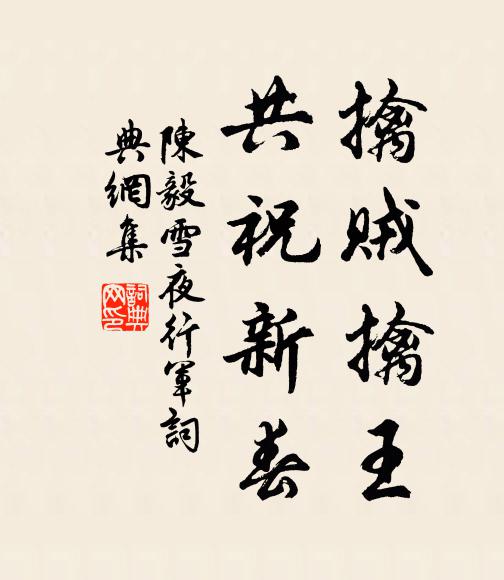 擒賊擒王
共祝新春
陳毅雪夜行軍詞
典網集
詞典網印